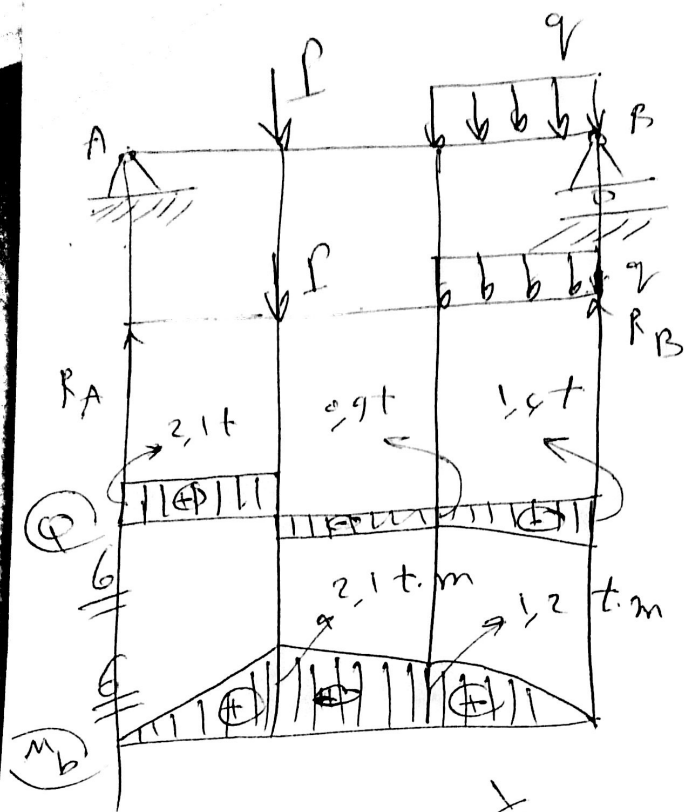 q
P
A
B
P
q
R_A
R_B
2,1 t
0,9 t
1,4 t
Q
+
-
+
6
2,1 t.m
1,2 t.m
6
+
+
+
M_b